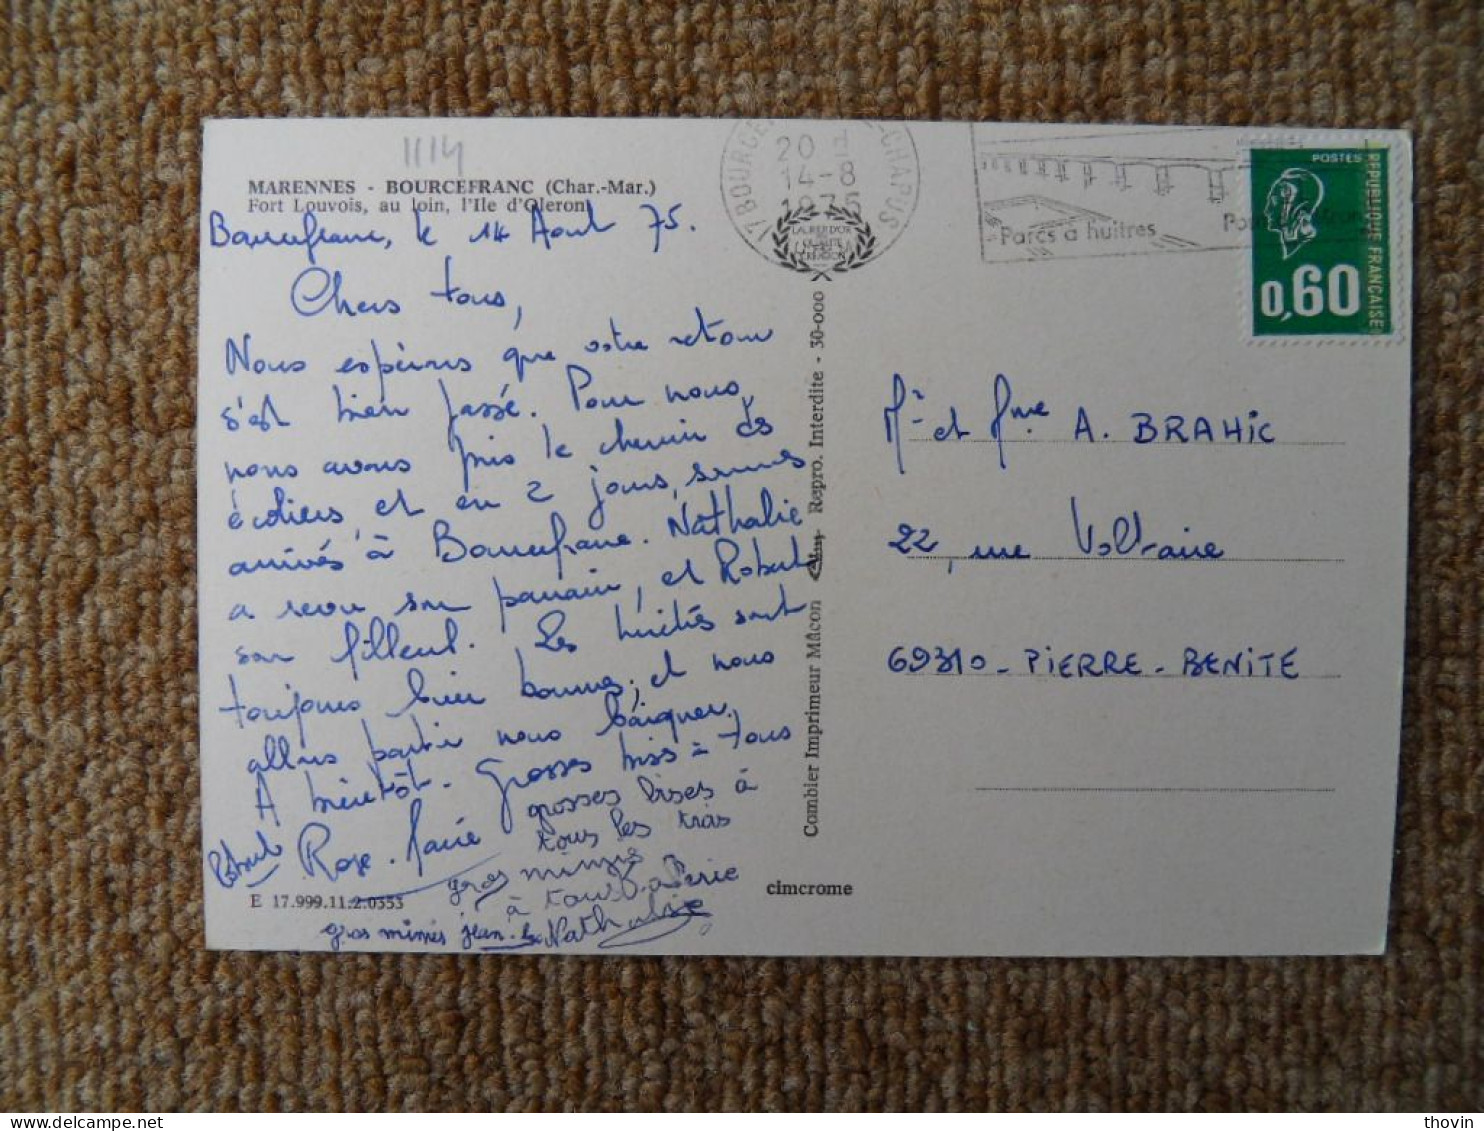 1114
MARENNES - BOURCEFRANC (Char.-Mar.)
Fort Louvois, au loin, l'Ile d'Oleron
Bourcefranc, le 14 Août 75.
Chers tous,
Nous espérons que votre retour
s'est bien passé. Pour nous,
nous avons pris le chemin des
écoliers, et en 2 jours, sommes
arrivés à Bourcefranc. Nathalie
a revu son parrain, et Robert
son filleul. Les huîtres sont
toujours bien bonnes, et nous
allons partir nous baigner.
A bientôt. Grosses bises à tous
Robert Rose-Marie
grosses bises à
tous les trois
gros mimis
à tous Valérie
Nathalie
gros mimis jean-
E 17.999.11.2.0353
cimcrome
Combier Imprimeur Mâcon Repro. Interdite - 30-000
17 BOURCE CHAPUS
20 H
14-8
1975
Parcs à huitres
POSTES
REPUBLIQUE FRANÇAISE
0,60
Mr et Mme A. BRAHIC
22, rue Voltaire
69310 - PIERRE-BENITE
thovin